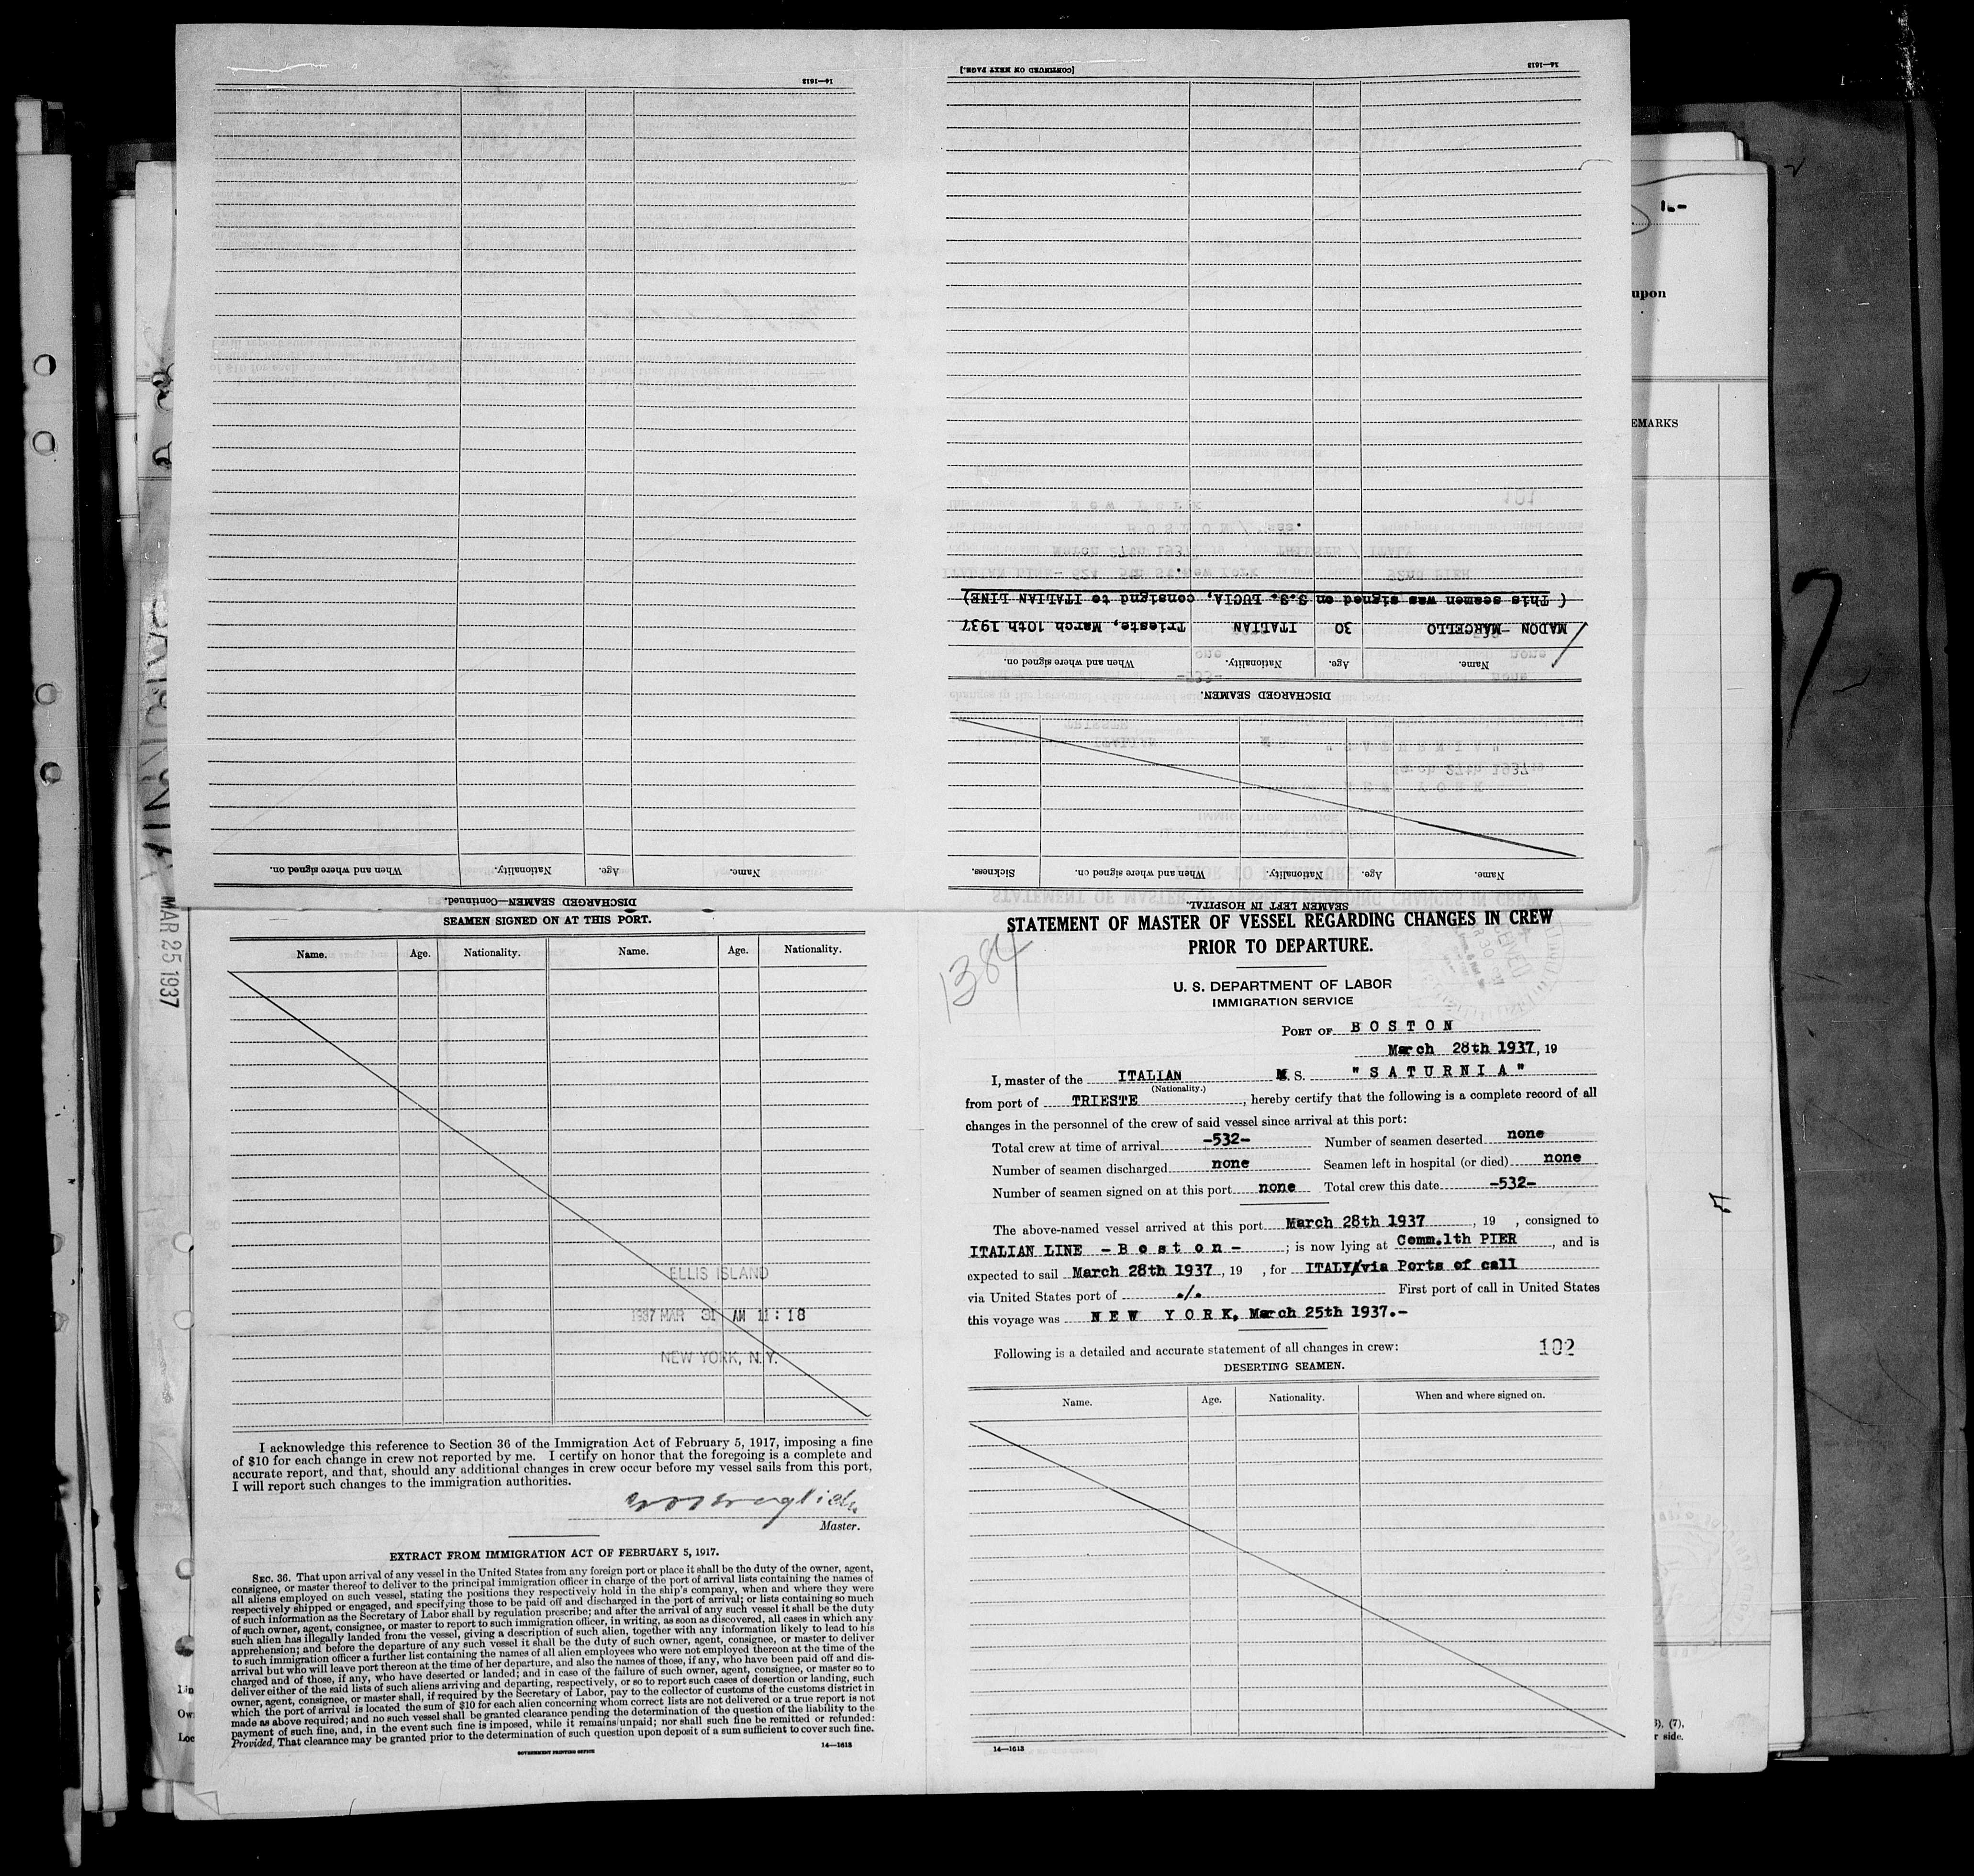 14—1613
[CONTINUED ON NEXT PAGE.]
14—1613
( This seamen was signed on S.S. LUCIA, consignd to ITALIAN LINE)
MADON -MARCELLO 30 ITALIAN Trieste, March 10th 1937
Name. Age. Nationality. When and where signed on.
DISCHARGED SEAMEN.
Name. Age. Nationality. When and where signed on. Sickness.
SEAMEN LEFT IN HOSPITAL.
Name. Age. Nationality. When and where signed on.
DISCHARGED SEAMEN—Continued.
upon
EMARKS
MAR 25 1937
SEAMEN SIGNED ON AT THIS PORT.
Name. Age. Nationality. Name. Age. Nationality.
ELLIS ISLAND
1937 MAR 31 AM 11:18
NEW YORK, N.Y.
I acknowledge this reference to Section 36 of the Immigration Act of February 5, 1917, imposing a fine
of $10 for each change in crew not reported by me. I certify on honor that the foregoing is a complete and
accurate report, and that, should any additional changes in crew occur before my vessel sails from this port,
I will report such changes to the immigration authorities.
Master.
EXTRACT FROM IMMIGRATION ACT OF FEBRUARY 5, 1917.
SEC. 36. That upon arrival of any vessel in the United States from any foreign port or place it shall be the duty of the owner, agent,
consignee, or master thereof to deliver to the principal immigration officer in charge of the port of arrival lists containing the names of
all aliens employed on such vessel, stating the positions they respectively hold in the ship's company, when and where they were
respectively shipped or engaged, and specifying those to be paid off and discharged in the port of arrival; or lists containing so much
of such information as the Secretary of Labor shall by regulation prescribe; and after the arrival of any such vessel it shall be the duty
of such owner, agent, consignee, or master to report to such immigration officer, in writing, as soon as discovered, all cases in which any
such alien has illegally landed from the vessel, giving a description of such alien, together with any information likely to lead to his
apprehension; and before the departure of any such vessel it shall be the duty of such owner, agent, consignee, or master to deliver
to such immigration officer a further list containing the names of all alien employees who were not employed thereon at the time of the
arrival but who will leave port thereon at the time of her departure, and also the names of those, if any, who have been paid off and dis-
charged and of those, if any, who have deserted or landed; and in case of the failure of such owner, agent, consignee, or master so to
deliver either of the said lists of such aliens arriving and departing, respectively, or so to report such cases of desertion or landing, such
owner, agent, consignee, or master shall, if required by the Secretary of Labor, pay to the collector of customs of the customs district in
which the port of arrival is located the sum of $10 for each alien concerning whom correct lists are not delivered or a true report is not
made as above required; and no such vessel shall be granted clearance pending the determination of the question of the liability to the
payment of such fine, and, in the event such fine is imposed, while it remains unpaid; nor shall such fine be remitted or refunded:
Provided, That clearance may be granted prior to the determination of such question upon deposit of a sum sufficient to cover such fine.
GOVERNMENT PRINTING OFFICE 14—1613
1384
STATEMENT OF MASTER OF VESSEL REGARDING CHANGES IN CREW
PRIOR TO DEPARTURE.
U. S. DEPARTMENT OF LABOR
IMMIGRATION SERVICE
PORT OF BOSTON
March 28th 1937, 19
I, master of the ITALIAN M. S. "SATURNIA"
(Nationality.)
from port of TRIESTE, hereby certify that the following is a complete record of all
changes in the personnel of the crew of said vessel since arrival at this port:
Total crew at time of arrival -532- Number of seamen deserted none
Number of seamen discharged none Seamen left in hospital (or died) none
Number of seamen signed on at this port none Total crew this date -532-
The above-named vessel arrived at this port March 28th 1937, 19 , consigned to
ITALIAN LINE -Boston- ; is now lying at Comm.lth PIER, and is
expected to sail March 28th 1937, 19 , for ITALY/via Ports of call
via United States port of ./. First port of call in United States
this voyage was NEW YORK, March 25th 1937.-
Following is a detailed and accurate statement of all changes in crew: 102
DESERTING SEAMEN.
Name. Age. Nationality. When and where signed on.
14—1613